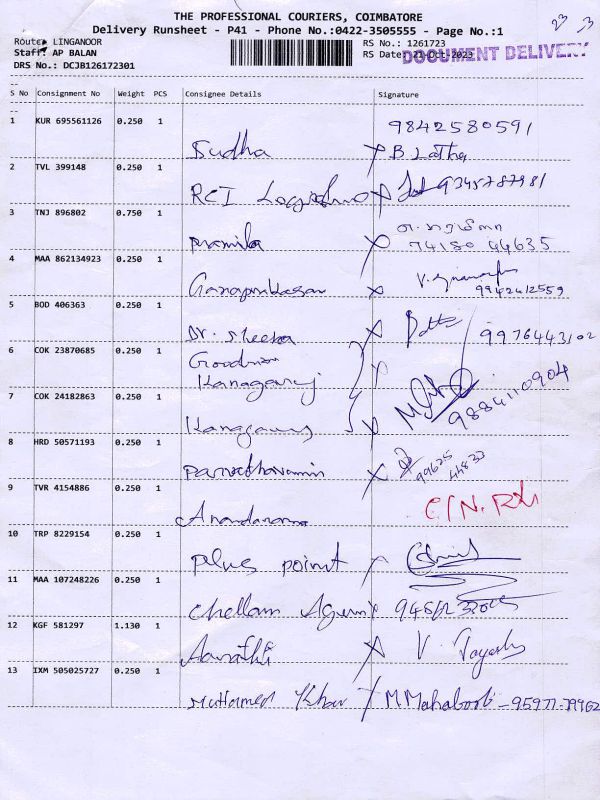 THE PROFESSIONAL COURIERS, COIMBATORE
Delivery Runsheet - P41 - Phone No.:0422-3505555 - Page No.:1
23 3
Route: LINGANOOR
RS No.: 1261723
Staff: AP BALAN
RS Date: 21-Oct-2023
DOCUMENT DELIVERY
DRS No.: DCJB126172301
S No Consignment No Weight PCS Consignee Details Signature
1 KUR 695561126 0.250 1
9842580591
Sudha B Latha
2 TVL 399148 0.250 1
RCI 9345787981
3 TNJ 896802 0.750 1
Pramila 74180 44635
4 MAA 862134923 0.250 1
Ganaprakasan 9942412559
5 BOD 406363 0.250 1
Dr. Sheeba 9976443102
6 COK 23870685 0.250 1
Goodwin
Kanagaraj
7 COK 24182863 0.250 1
Kanagaraj 9884110904
8 HRD 50571193 0.250 1
99625
44833
9 TVR 4154886 0.250 1
10 TRP 8229154 0.250 1
Plus point
11 MAA 107248226 0.250 1
Chellam
12 KGF 581297 1.130 1
Aarathi V.
13 IXM 505025727 0.250 1
Mohamed Khan M Mahaboob - 95977-79962